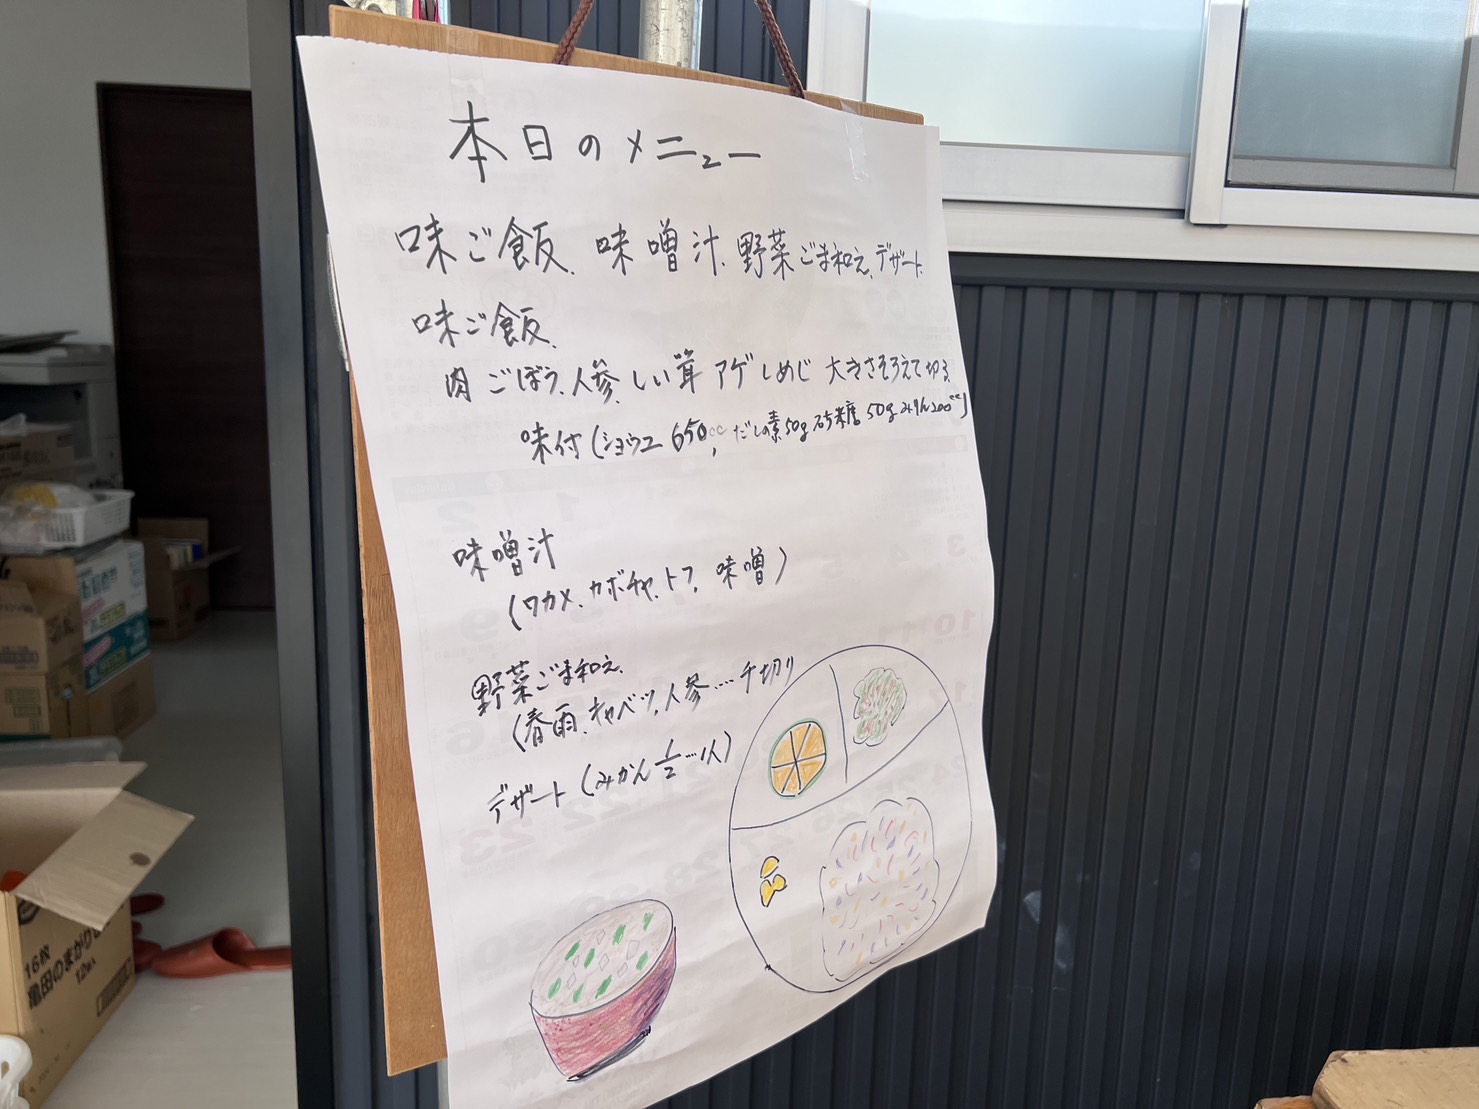 本日のメニュー
味ご飯、味噌汁、野菜ごま和え、デザート
味ご飯、
肉 ごぼう、人参、しい茸 アゲ しめじ 大きさそろえて切る
味付(ショウユ 650cc, だしの素50g 砂糖 50g みりん200cc)
味噌汁
(ワカメ、カボチャ、トフ、味噌)
野菜ごま和え、
(春雨、キャベツ、人参…千切り
デザート(みかん 1/2…1人)
16枚
亀田のまがりせ
12個入